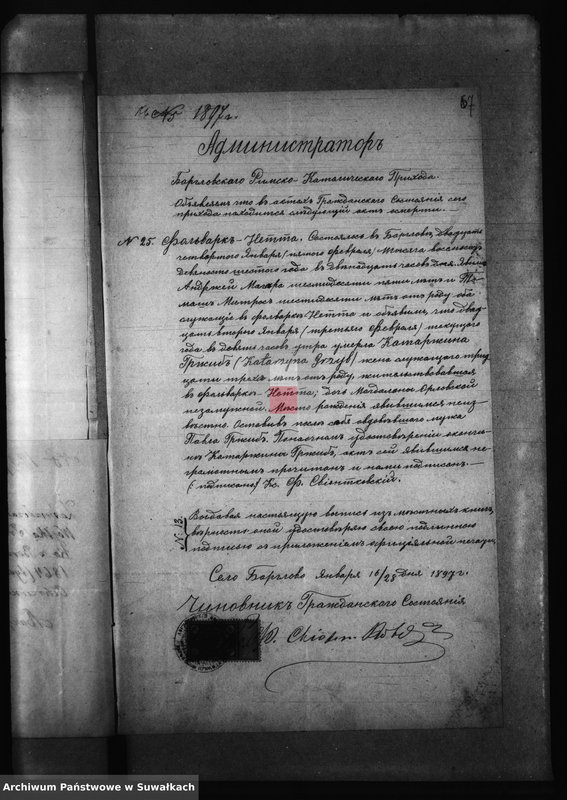 №5 1897 г.
67
Администраторъ
Барглoвскаго Римско Католическаго Прихода
Объявляю что въ актахъ Гражданского Состоянiя сего
прихода находится слѣдующiй актъ смерти. —
№ 25. Фольваркъ-Нетта. Состоялось въ Барглове, двадцать
четвертаго Января /пятаго Февраля/ Мѣсяца восемьсотъ
девяносто шестого года въ двѣнадцать часовъ дня. Явились
Андржей шестидесяти пяти лѣтъ и То-
машъ Матросъ шестидесяти лѣтъ отъ роду оба
служащiе въ фольварке Нетта и объявили, что двад-
цать второго Января /третьяго Февраля/ текущаго
года въ девять часовъ утра умерла Катаржина
Гржибъ /Katarzyna Grzyb/ жена служащаго трид-
цати трехъ лѣтъ отъ роду, жительствовавшая
въ фольварке Нетта; дочь Магдалены Орловской
незамужней. Мѣсто рожденiя явившимся неиз-
вестно. Оставивъ после себя овдовѣвшаго мужа
Павла Гржибъ. По наочномъ удостовѣренiи о кончи-
не Катаржины Гржибъ, актъ сей явившимся не-
грамотнымъ прочитанъ и нами подписанъ. —
/подписано/ Кс. Ф. Свiонтковскiй.
№ 13.
Выдавая настоящую выпись изъ мѣстныхъ книгъ,
вѣрность оной удостовѣряю своею подлинною
подписью съ приложенiемъ официальной печати.
Село Барглово Января 16/28 дня 1897 г.
Чиновникъ Гражданского Состоянiя
Archiwum Państwowe w Suwałkach